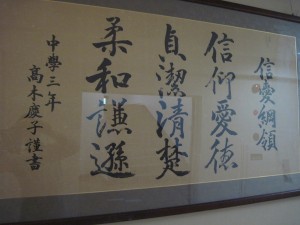 信愛綱領
信仰愛徳
貞潔清楚
柔和謙遜
中學三年
高木慶子謹書